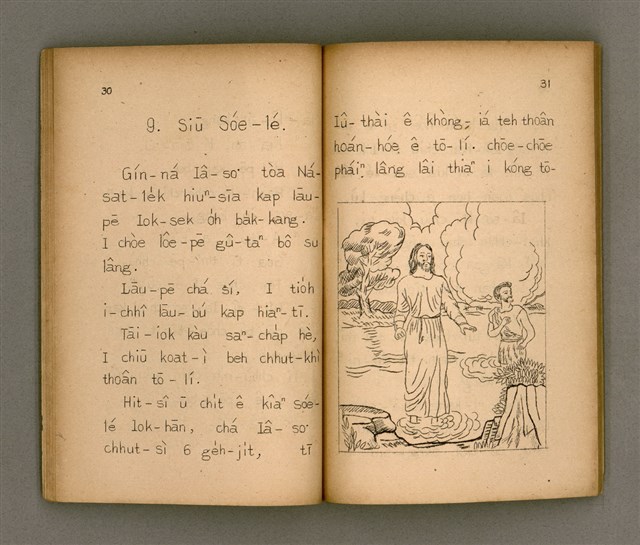 30
9. Siū Sóe-lé.
Gín-ná Iâ-so͘ tòa Ná-
sat-le̍k hiuⁿ-siā kap lāu-
pē Iok-sek o̍h ba̍k-kang.
I chòe lôe-pē gû-taⁿ bô su
lâng.
Lāu-pē chá sí, I tio̍h
i-chhî lāu-bú kap hiaⁿ-tī.
Tāi-iok kàu saⁿ-cha̍p hè,
I chiū koat-ì beh chhut-khì
thoân tō-lí.
Hit-sî ū chi̍t ê kîaⁿ Sóe-
lé Iok-hān, chá Iâ-so͘
chhut-sì 6 ge̍h-ji̍t, tī
31
Iû-thài ê khòng-iá teh thoân
hoán-hóe ê tō-lí. chōe-chōe
pháiⁿ lâng lâi thiaⁿ i kóng tō-